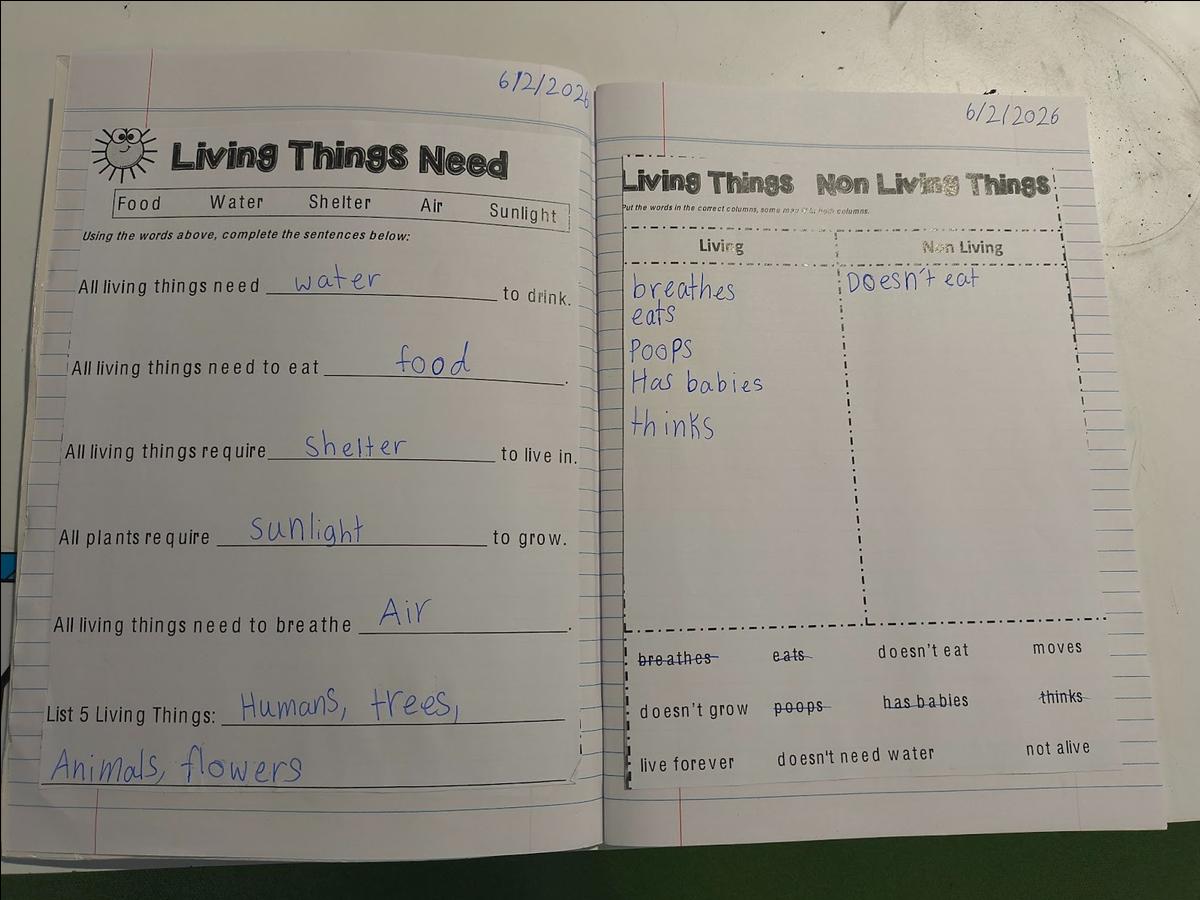 6/2/2026
Living Things Need
Food Water Shelter Air Sunlight
Using the words above, complete the sentences below:
All living things need water to drink.
All living things need to eat food.
All living things require shelter to live in.
All plants require sunlight to grow.
All living things need to breathe Air.
List 5 Living Things: Humans, trees,
Animals, flowers
6/2/2026
Living Things Non Living Things
Put the words in the correct columns, some may fit in both columns.
Living Non Living
breathes Doesn't eat
eats
Poops
Has babies
thinks
breathes eats doesn't eat moves
doesn't grow poops has babies thinks
live forever doesn't need water not alive